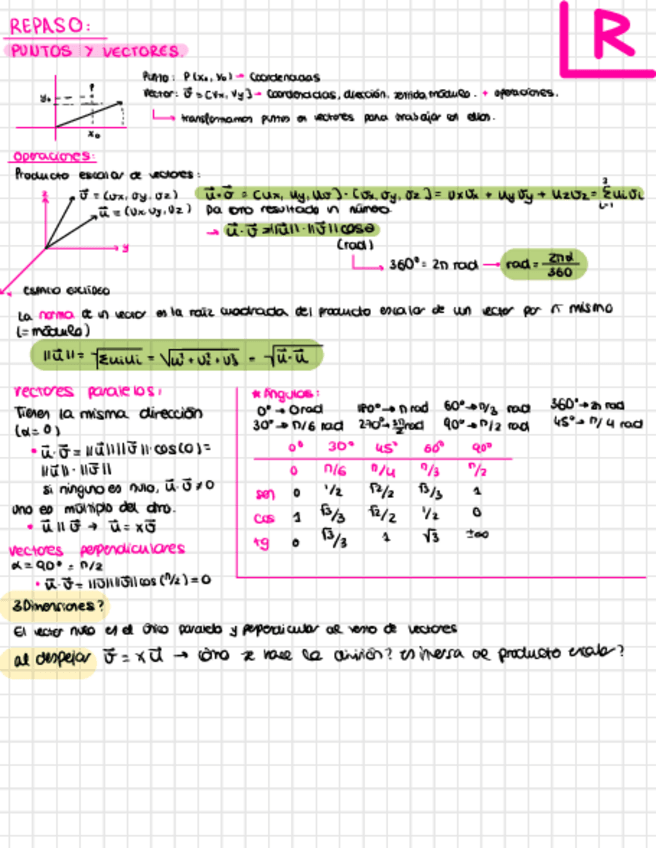 REPASO:
R
PUNTOS Y VECTORES.
Punto: P(x₀, y₀) → Coordenadas
Vector: v⃗ = (vx, vy) → Coordenadas, dirección, sentido, módulo. + operaciones.
transformamos puntos en vectores para trabajar en ellos.
y₀ P
x₀
Operaciones:
Producto escalar de vectores:
z v⃗ = (vx, vy, vz)
u⃗ = (ux, uy, uz)
y
u⃗·v⃗ = (ux, uy, uz)·(vx, vy, vz) = uxvx + uyvy + uzvz = Σ uivi
Da como resultado un número
→ u⃗·v⃗ = ||u⃗||·||v⃗|| cosθ
(rad)
360° = 2π rad → rad = 2πα/360
ESPACIO EUCLÍDEO
La norma de un vector es la raíz cuadrada del producto escalar de un vector por sí mismo
(= módulo)
||u⃗|| = √Σuiui = √u₁² + u₂² + u₃² = √u⃗·u⃗
Vectores paralelos:
Tienen la misma dirección
(α = 0)
• u⃗·v⃗ = ||u⃗|| ||v⃗||·cos(0) =
||u⃗||·||v⃗||
si ninguno es nulo, u⃗·v⃗ ≠ 0
uno es múltiplo del otro.
• u⃗ || v⃗ → u⃗ = xv⃗
Vectores perpendiculares
α = 90° = π/2
• u⃗·v⃗ = ||u⃗|| ||v⃗|| cos(π/2) = 0
* Ángulos:
0° → 0 rad 180° → π rad 60° → π/3 rad 360° → 2π rad
30° → π/6 rad 270° → 3π/2 rad 90° → π/2 rad 45° → π/4 rad
0° 30° 45° 60° 90°
0 π/6 π/4 π/3 π/2
sen 0 1/2 √2/2 √3/3 1
cos 1 √3/3 √2/2 1/2 0
tg 0 √3/3 1 √3 ±∞
3 Dimensiones?
El vector nulo es el único paralelo y perpendicular al resto de vectores
al despejar v⃗ = x u⃗ → cómo se hace la división? es inversa al producto escalar?